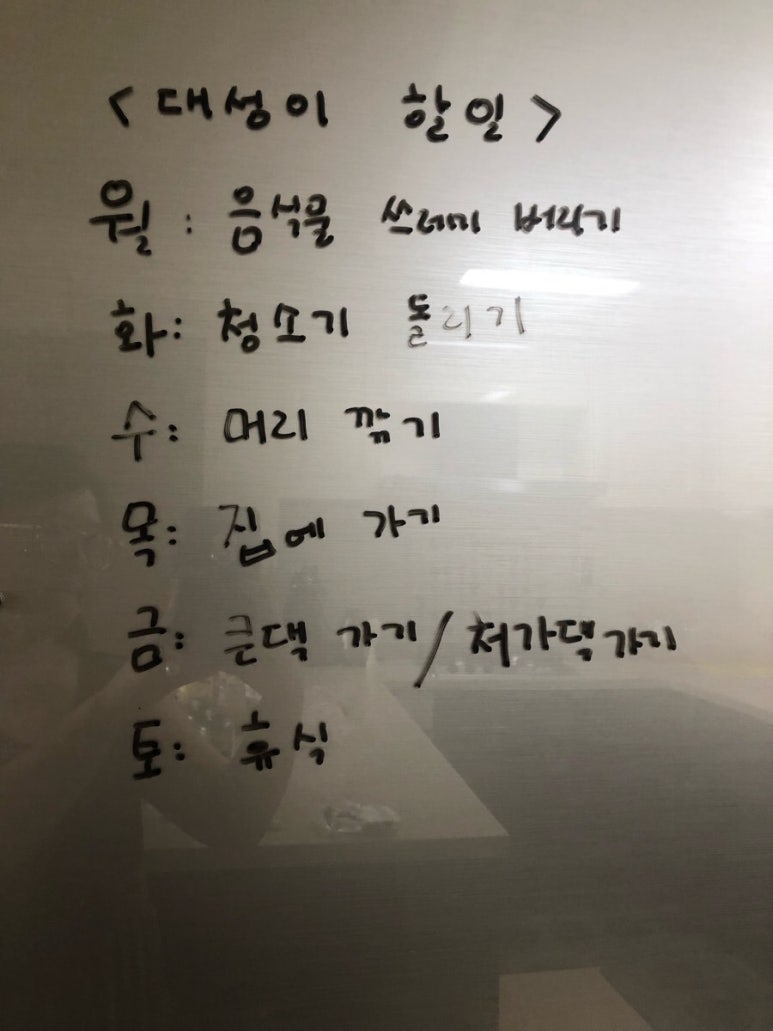 <대성이 할일>
월: 음식물 쓰레기 버리기
화: 청소기 돌리기
수: 머리 깎기
목: 집에 가기
금: 큰댁 가기/처가댁가기
토: 휴식